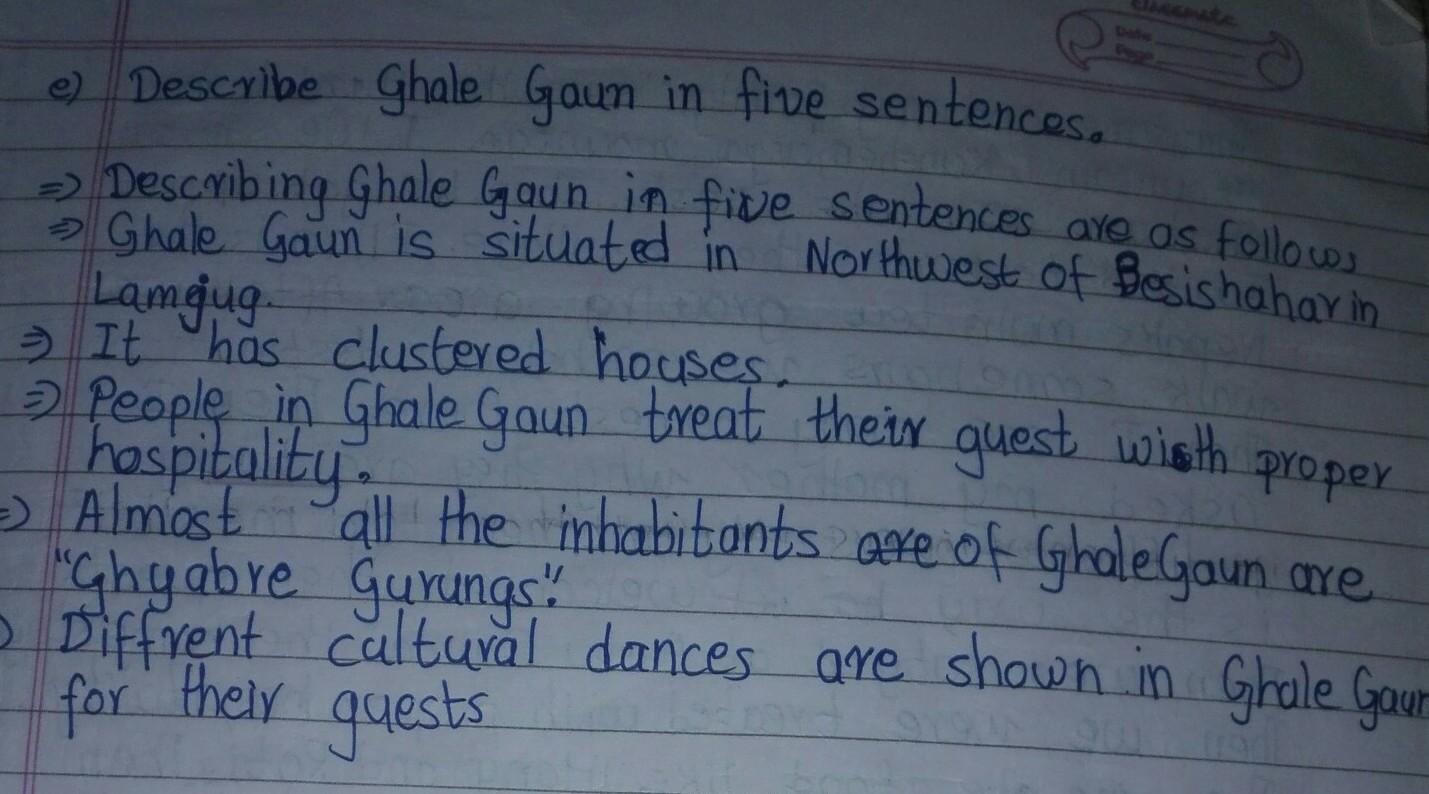 classmate
Date
Page
e) Describe Ghale Gaun in five sentences.
=> Describing Ghale Gaun in five sentences are as follows
=> Ghale Gaun is situated in Northwest of Besishahar in
Lamjug.
=> It has clustered houses.
=> People in Ghale Gaun treat their guest with proper
hospitality.
=> Almost all the inhabitants are of Ghale Gaun are
"Ghyabre Gurungs".
Diffrent cultural dances are shown in Ghale Gaun
for their guests